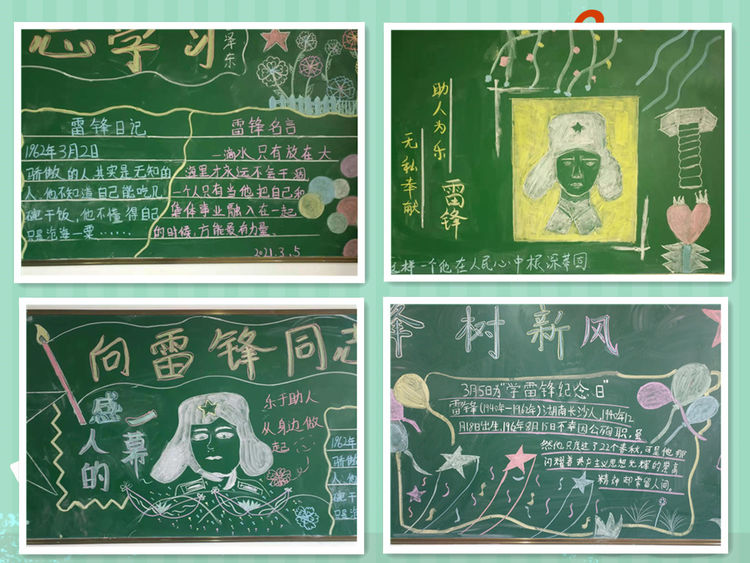 志学习
泽东
雷锋日记
1962年3月2日
骄傲的人,其实是无知的
人.他不知道自己能吃几
碗干饭,他不懂得自己
只是沧海一粟……
雷锋名言
一滴水只有放在大
海里才永远不会干涸
一个人只有当他把自己和
集体事业融入在一起
的时候,方能最有力量.
2021.3.5
助人为乐
无私奉献
雷锋
这样一个他在人民心中根深蒂固
向雷锋同志
感人的
一幕
乐于助人
从身边做
起
1962年
骄傲
人.
碗干
只是
锋 树新风
3月5日为"学雷锋纪念日"
雷锋(1940年-1962年)湖南长沙人,1940年12
月18日出生,1962年8月15日不幸因公殉职,虽
然他只度过了22个春秋,可是他那
闪耀着共产主义思想光辉的崇高
精神却常留人间.